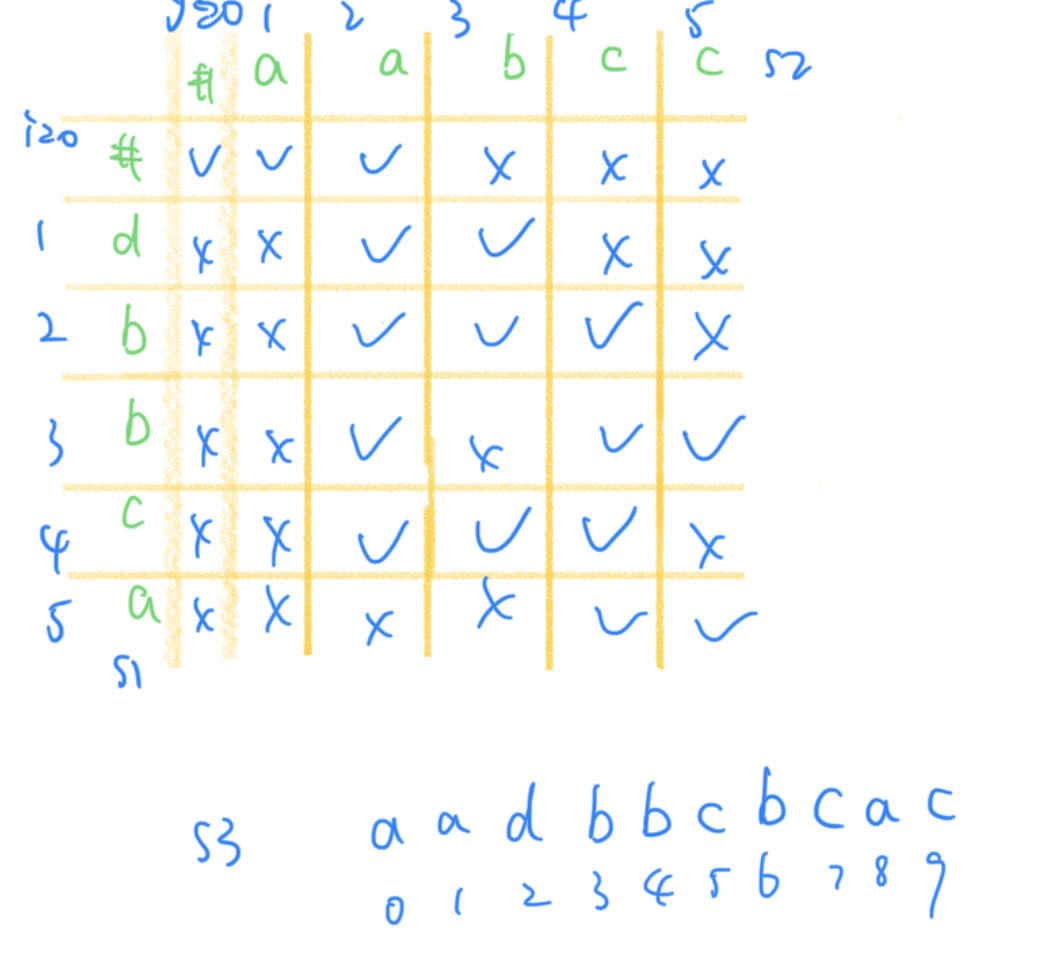 j=0 1 2 3 4 5
# a a b c c s2
i=0 # ✓ ✓ ✓ x x x
1 d x x ✓ ✓ x x
2 b x x ✓ ✓ ✓ x
3 b x x ✓ x ✓ ✓
4 c x x ✓ ✓ ✓ x
5 a x x x x ✓ ✓
s1
s3 a a d b b c b c a c
0 1 2 3 4 5 6 7 8 9